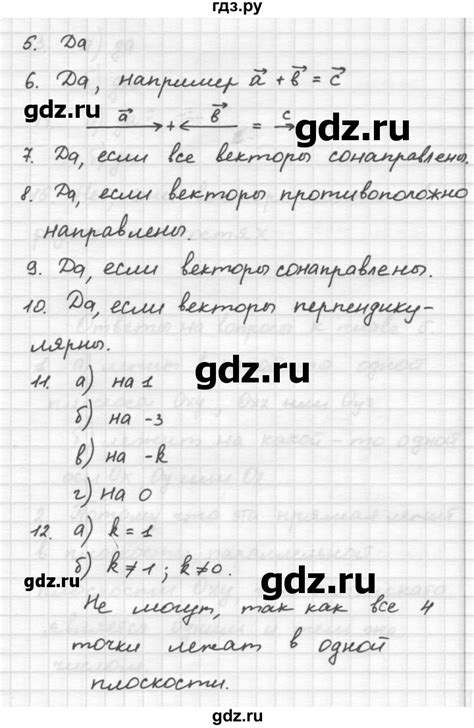 гдз.ру
5. Да
6. Да, например a⃗ + b⃗ = c⃗
gdz.ru
a⃗ + b⃗ = c
gdz.ru
7. Да, если все векторы сонаправлены.
8. Да, если векторы противоположно
направлены.
9. Да, если векторы сонаправлены.
10. Да, если векторы перпендику-
лярны.
gdz.ru
11. а) на 1
б) на -3
gdz.ru
в) на -k
г) на 0
12. а) k = 1
gdz.ru
б) k ≠ 1 ; k ≠ 0.
gdz.ru
Не могут, так как все 4
точки лежат в одной
плоскости.
gdz.ru